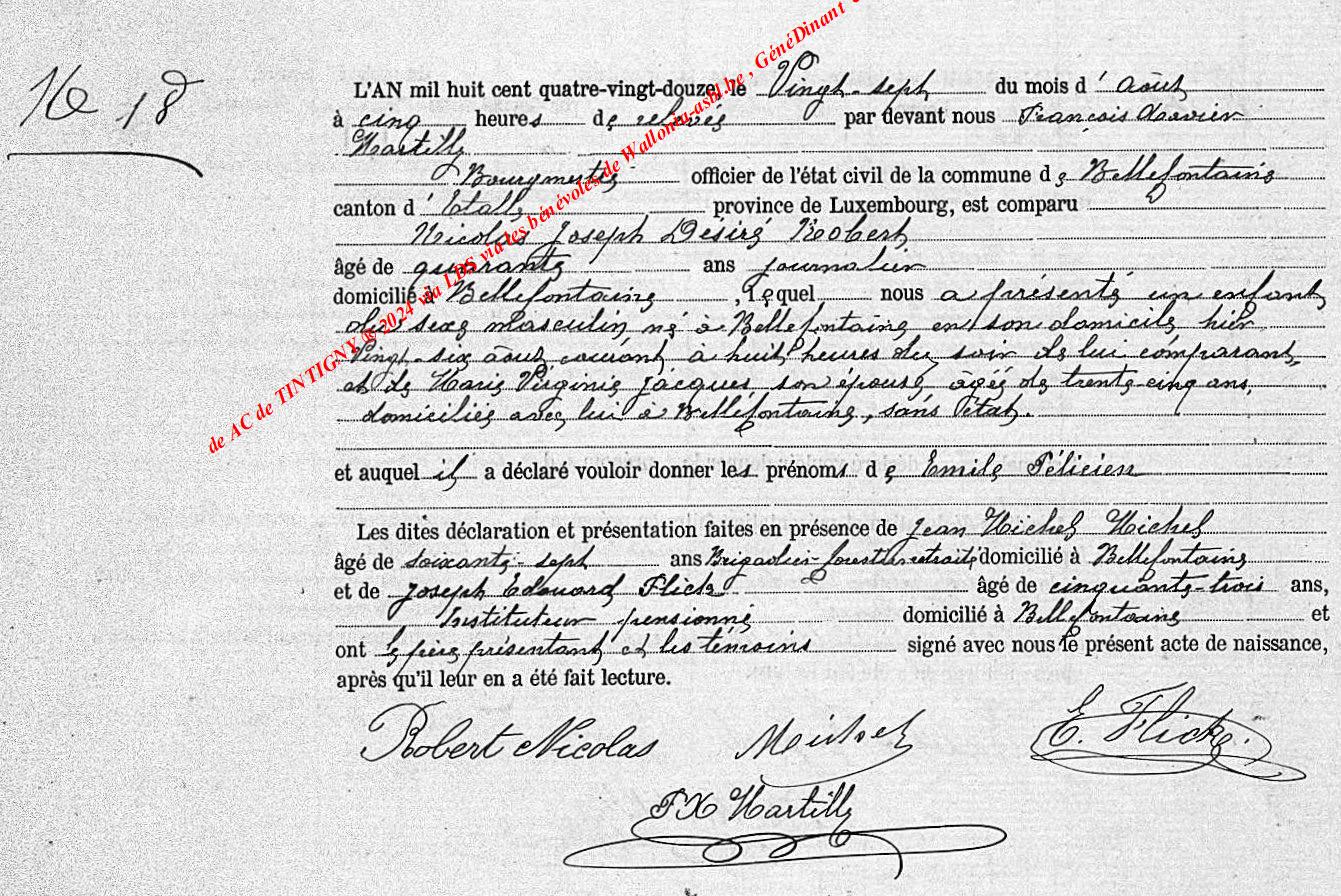 No 18
L'AN mil huit cent quatre-vingt-douze, le Vingt-sept du mois d'août
à cinq heures de relevée par devant nous François Xavier
Martilly
Bourgmestre officier de l'état civil de la commune de Bellefontaine
canton d'Etalle province de Luxembourg, est comparu
Nicolas Joseph Désiré Robert
âgé de quarante ans journalier
domicilié à Bellefontaine, Lequel nous a présenté un enfant
du sexe masculin né à Bellefontaine en son domicile hier
Vingt-six août courant à huit heures du soir de lui comparant
et de Marie Virginie Jacques son épouse, âgée de trente-cinq ans,
domiciliée avec lui à Bellefontaine, sans état.
et auquel il a déclaré vouloir donner les prénoms de Emile Félicien
Les dites déclaration et présentation faites en présence de Jean Michel Michel
âgé de soixante-sept ans Brigadier-forestier retraité domicilié à Bellefontaine
et de Joseph Edouard Flick âgé de cinquante-trois ans,
Instituteur pensionné domicilié à Bellefontaine et
ont le père présentant et les témoins signé avec nous le présent acte de naissance,
après qu'il leur en a été fait lecture.
Robert Nicolas Michel E. Flick.
FX Martilly
de AC de TINTIGNY @ 2024 via LDS via les bénévoles de Wallonia-asbl.be, GénéDinant